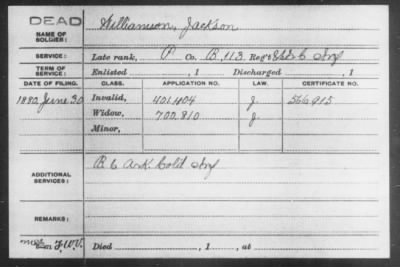 DEAD
NAME OF SOLDIER:
Williamson, Jackson
SERVICE:
Late rank, P Co. B, 113, Reg't U.S.C. Inf
TERM OF SERVICE:
Enlisted , 1 Discharged , 1
DATE OF FILING. CLASS. APPLICATION NO. LAW. CERTIFICATE NO.
1880, June 30 Invalid, 401,404 J. 566,915
Widow, 700,810 J
Minor,
ADDITIONAL SERVICES:
B 6 Ark. Cold Inf
REMARKS:
Died , 1 , at